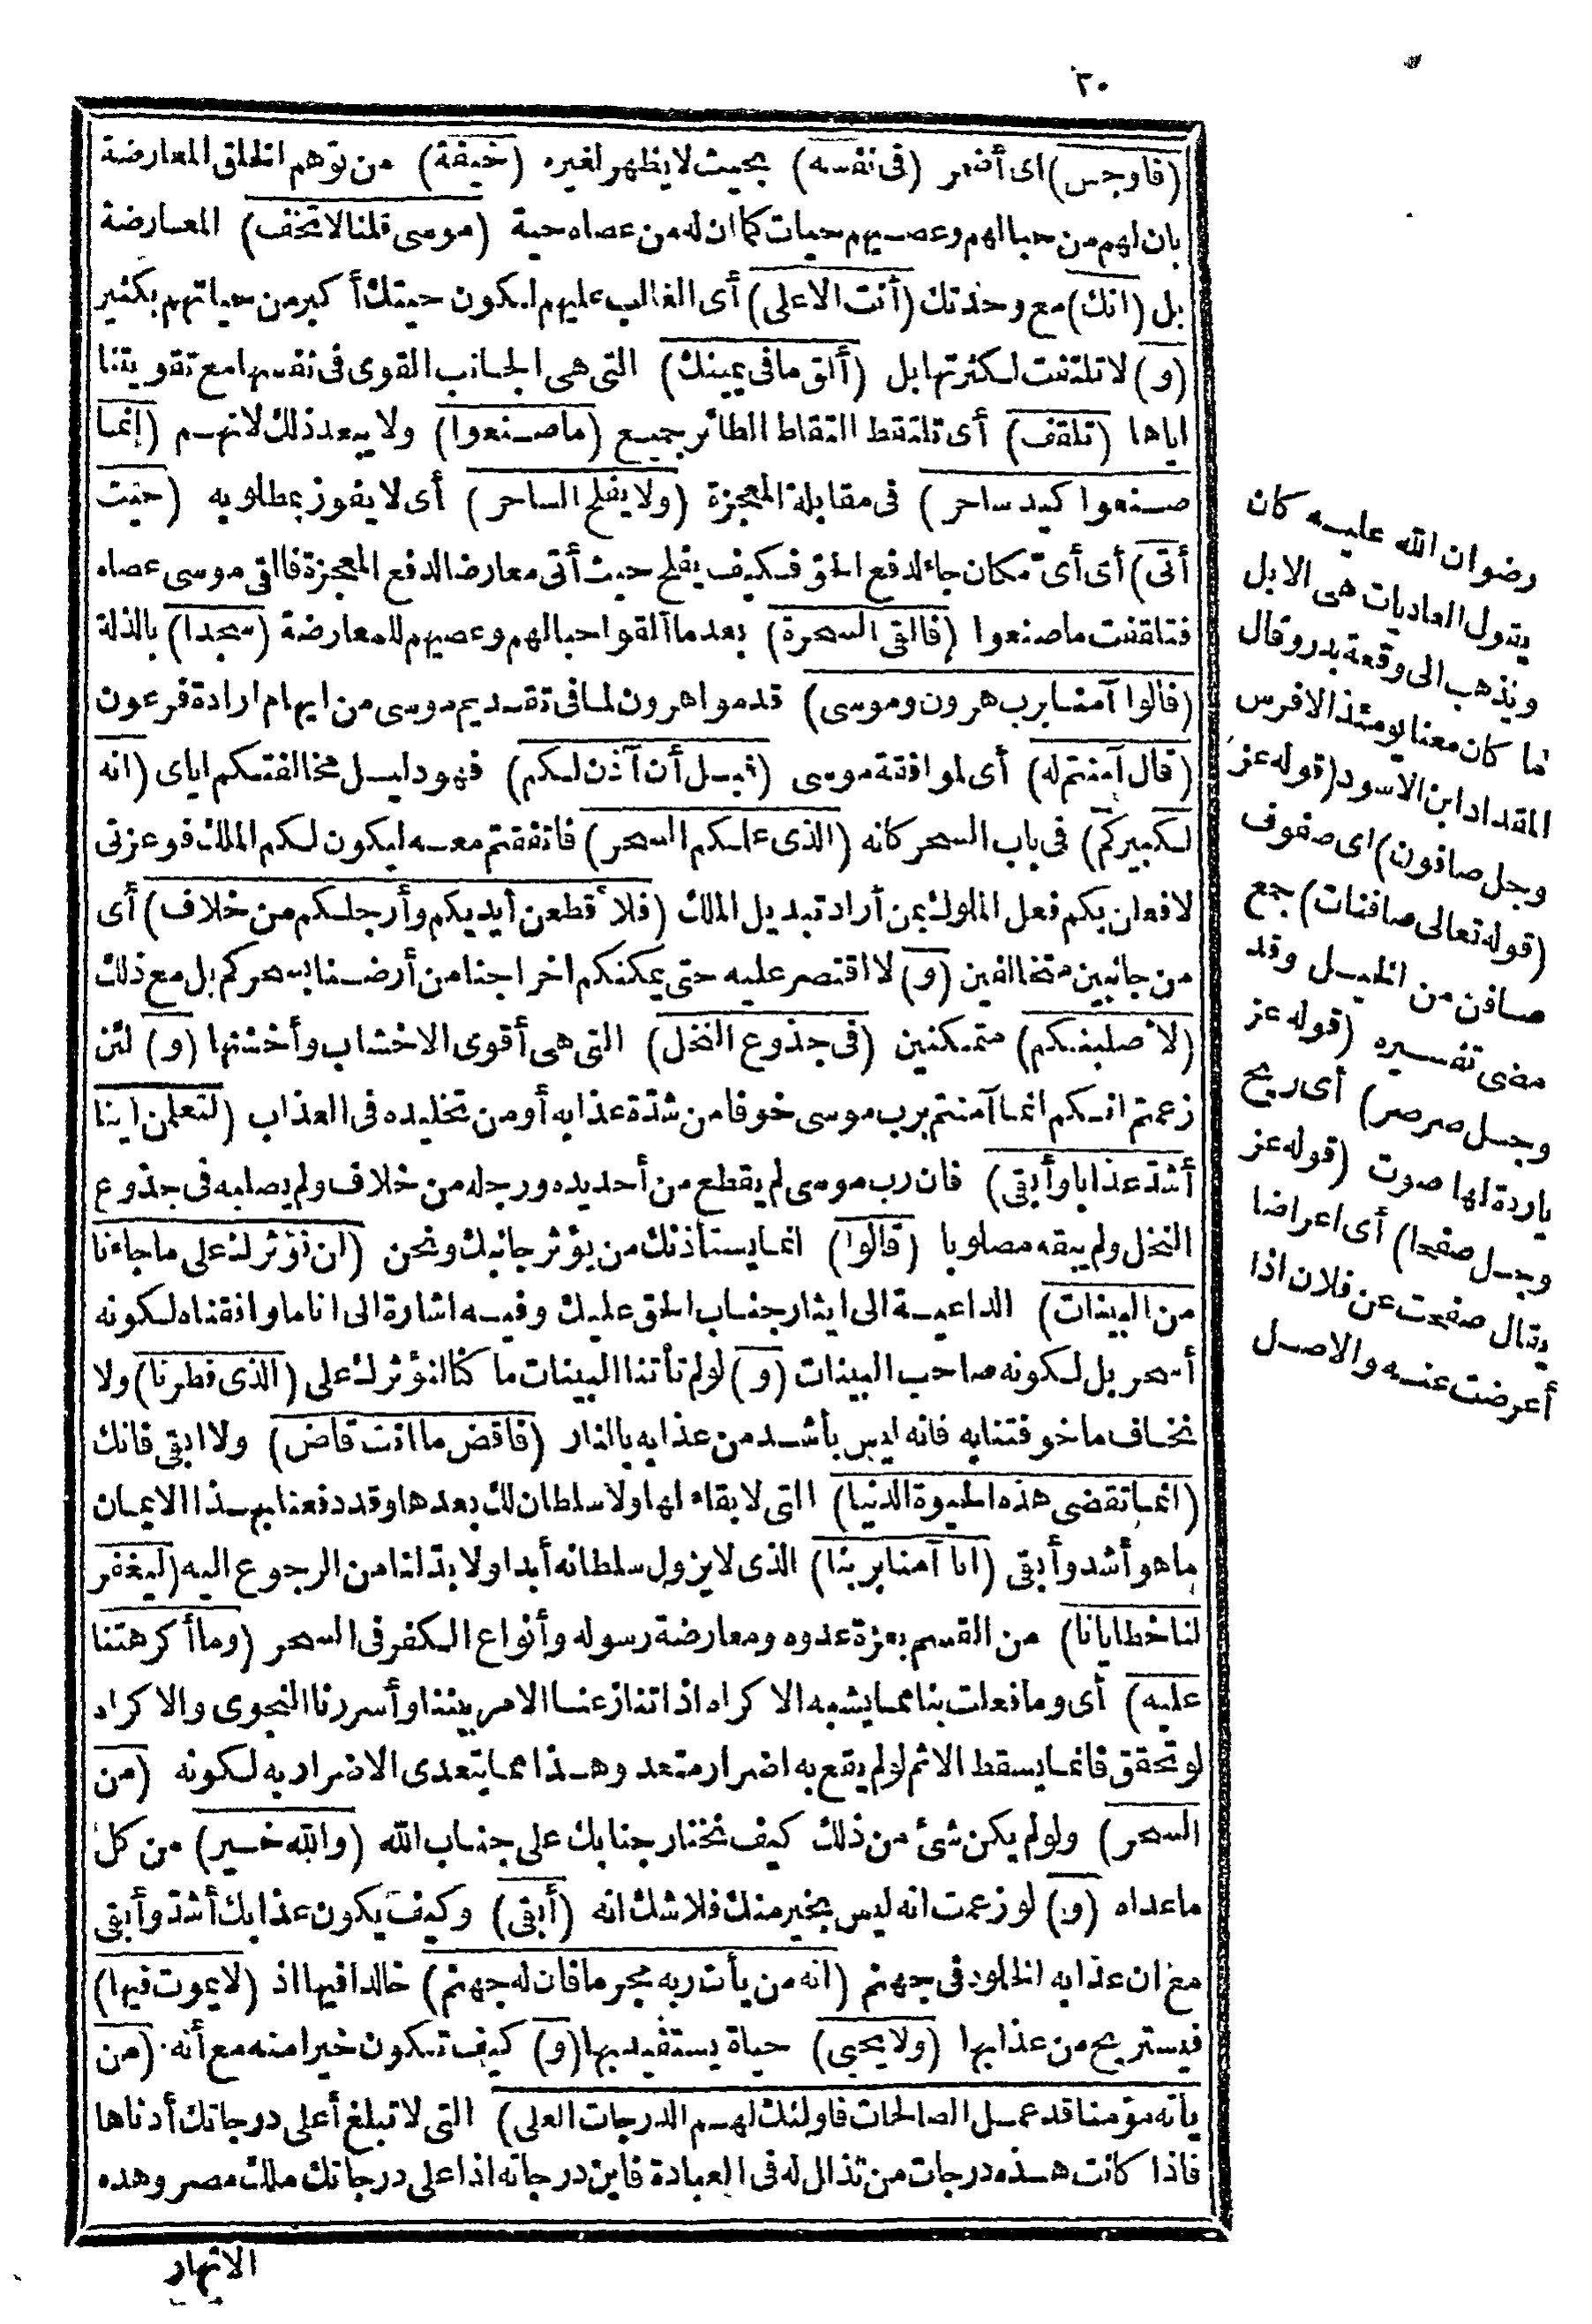 ٣٠
(فاوجس) اى أضمر (فى نفسه) بحيث لا يظهر لغيره (خيفة) من توهم الخلق المعارضة
بان لهم من حبالهم وعصيهم حيات كما ان له من عصاه حية (موسى قلنا لا تخف) المعارضة
بل (انك) مع وحدتك (أنت الاعلى) أى الغالب عليهم لكون حيتك أكبر من حياتهم بكثير
(و) لا تلتفت لكثرتها بل (ألق ما فى يمينك) التى هى الجانب القوى فى نفسها مع تقويتنا
اياها (تلقف) أى تلتقط التقاط الطائر جميع (ما صنعوا) ولا يبعد ذلك لانهم (إنما
صنعوا كيد ساحر) فى مقابلة المعجزة (ولا يفلح الساحر) أى لا يفوز بمطلوبه (حيث
أتى) أى أىّ مكان جاء لدفع الحق فكيف يفلح حيث أتى معارضا لدفع المعجزة فالقى موسى عصاه
فتلقفت ما صنعوا (فالقى السحرة) بعد ما ألقوا حبالهم وعصيهم للمعارضة (سجدا) بالذلة
(قالوا آمنا برب هرون وموسى) قدموا هرون لما فى تقديم موسى من ايهام ارادة فرعون
(قال آمنتم له) أى لموافقة موسى (قبل أن آذن لكم) فهو دليل مخالفتكم اياى (انه
لكبيركم) فى باب السحر كانه (الذى علمكم السحر) فاتفقتم معه ليكون لكم الملك فوعزتى
لافعلن بكم فعل الملوك بمن أراد تبديل الملك (فلأقطعن أيديكم وأرجلكم من خلاف) أى
من جانبين متخالفين (و) لا اقتصر عليه حتى يمكنكم اخراجنا من أرضنا بسحركم بل مع ذلك
(لأصلبنكم) متمكنين (فى جذوع النخل) التى هى أقوى الاخشاب وأخشنها (و) لئن
زعمتم انكم انما آمنتم برب موسى خوفا من شدّة عذابه أو من تخليده فى العذاب (لتعلمن اينا
أشدّ عذابا وأبقى) فان رب موسى لم يقطع من أحد يده ورجله من خلاف ولم يصلبه فى جذوع
النخل ولم يبقه مصلوبا (قالوا) انما يستأذنك من يؤثر جانبك ونحن (لن نؤثرك على ما جاءنا
من البينات) الداعية الى ايثار جناب الحق عليك وفيه اشارة الى انا ما وافقناه لكونه
أسحر بل لكونه صاحب البينات (و) لو لم تأتنا البينات ما كنا لنؤثرك على (الذى فطرنا) ولا
نخاف ما خوفتنا به فانه ليس بأشد من عذابه بالنار (فاقض ما انت قاض) ولا ابقى فانك
(انما تقضى هذه الحيوة الدنيا) التى لا بقاء لها ولا سلطان لك بعدها وقد دفعنا بهذا الايمان
ما هو أشد وأبقى (انا آمنا بربنا) الذى لا يزول سلطانه أبدا ولا بدّ لنا من الرجوع اليه (ليغفر
لنا خطايانا) من القسم بعزة عدوه ومعارضة رسوله وأنواع الكفر فى السحر (وما أكرهتنا
عليه) أى وما فعلت بنا مما يشبه الاكراه اذا تنازعنا الامر بيننا وأسررنا النجوى والاكراه
لو تحقق فانما يسقط الاثم لو لم يقع به اضرار متعد وهذا مما يتعدى الاضرار به لكونه (من
السحر) ولو لم يكن شئ من ذلك كيف نختار جنابك على جناب الله (والله خير) من كل
ما عداه (و) لو زعمت انه ليس بخير منك فلا شك انه (أبقى) وكيف يكون عذابك أشدّ وأبقى
مع ان عذابه الخلود فى جهنم (انه من يأت ربه مجرما فان له جهنم) خالدا فيها اذ (لا يموت فيها)
فيستريح من عذابها (ولا يحيى) حياة يستفيد بها (و) كيف تكون خيرا منه مع أنه (من
يأته مؤمنا قد عمل الصالحات فاولئك لهم الدرجات العلى) التى لا تبلغ أعلى درجاتك أدناها
فاذا كانت هذه درجات من تذلل له فى العبادة فاين درجاته اذ اعلى درجاتك ملك مصر وهذه
الانهار
رضوان الله عليه كان
يقول العاديات هى الابل
ويذهب الى وقعة بدر وقال
ما كان معنا يومئذ الا فرس
المقداد ابن الاسود (قوله عز
وجل صافون) اى صفوف
(قوله تعالى صافنات) جمع
صافن من الخيل وقد
مضى تفسيره (قوله عز
وجل صرصر) أى ريح
باردة لها صوت (قوله عز
وجل صفحا) أى اعراضا
يقال صفحت عن فلان اذا
أعرضت عنه والاصل